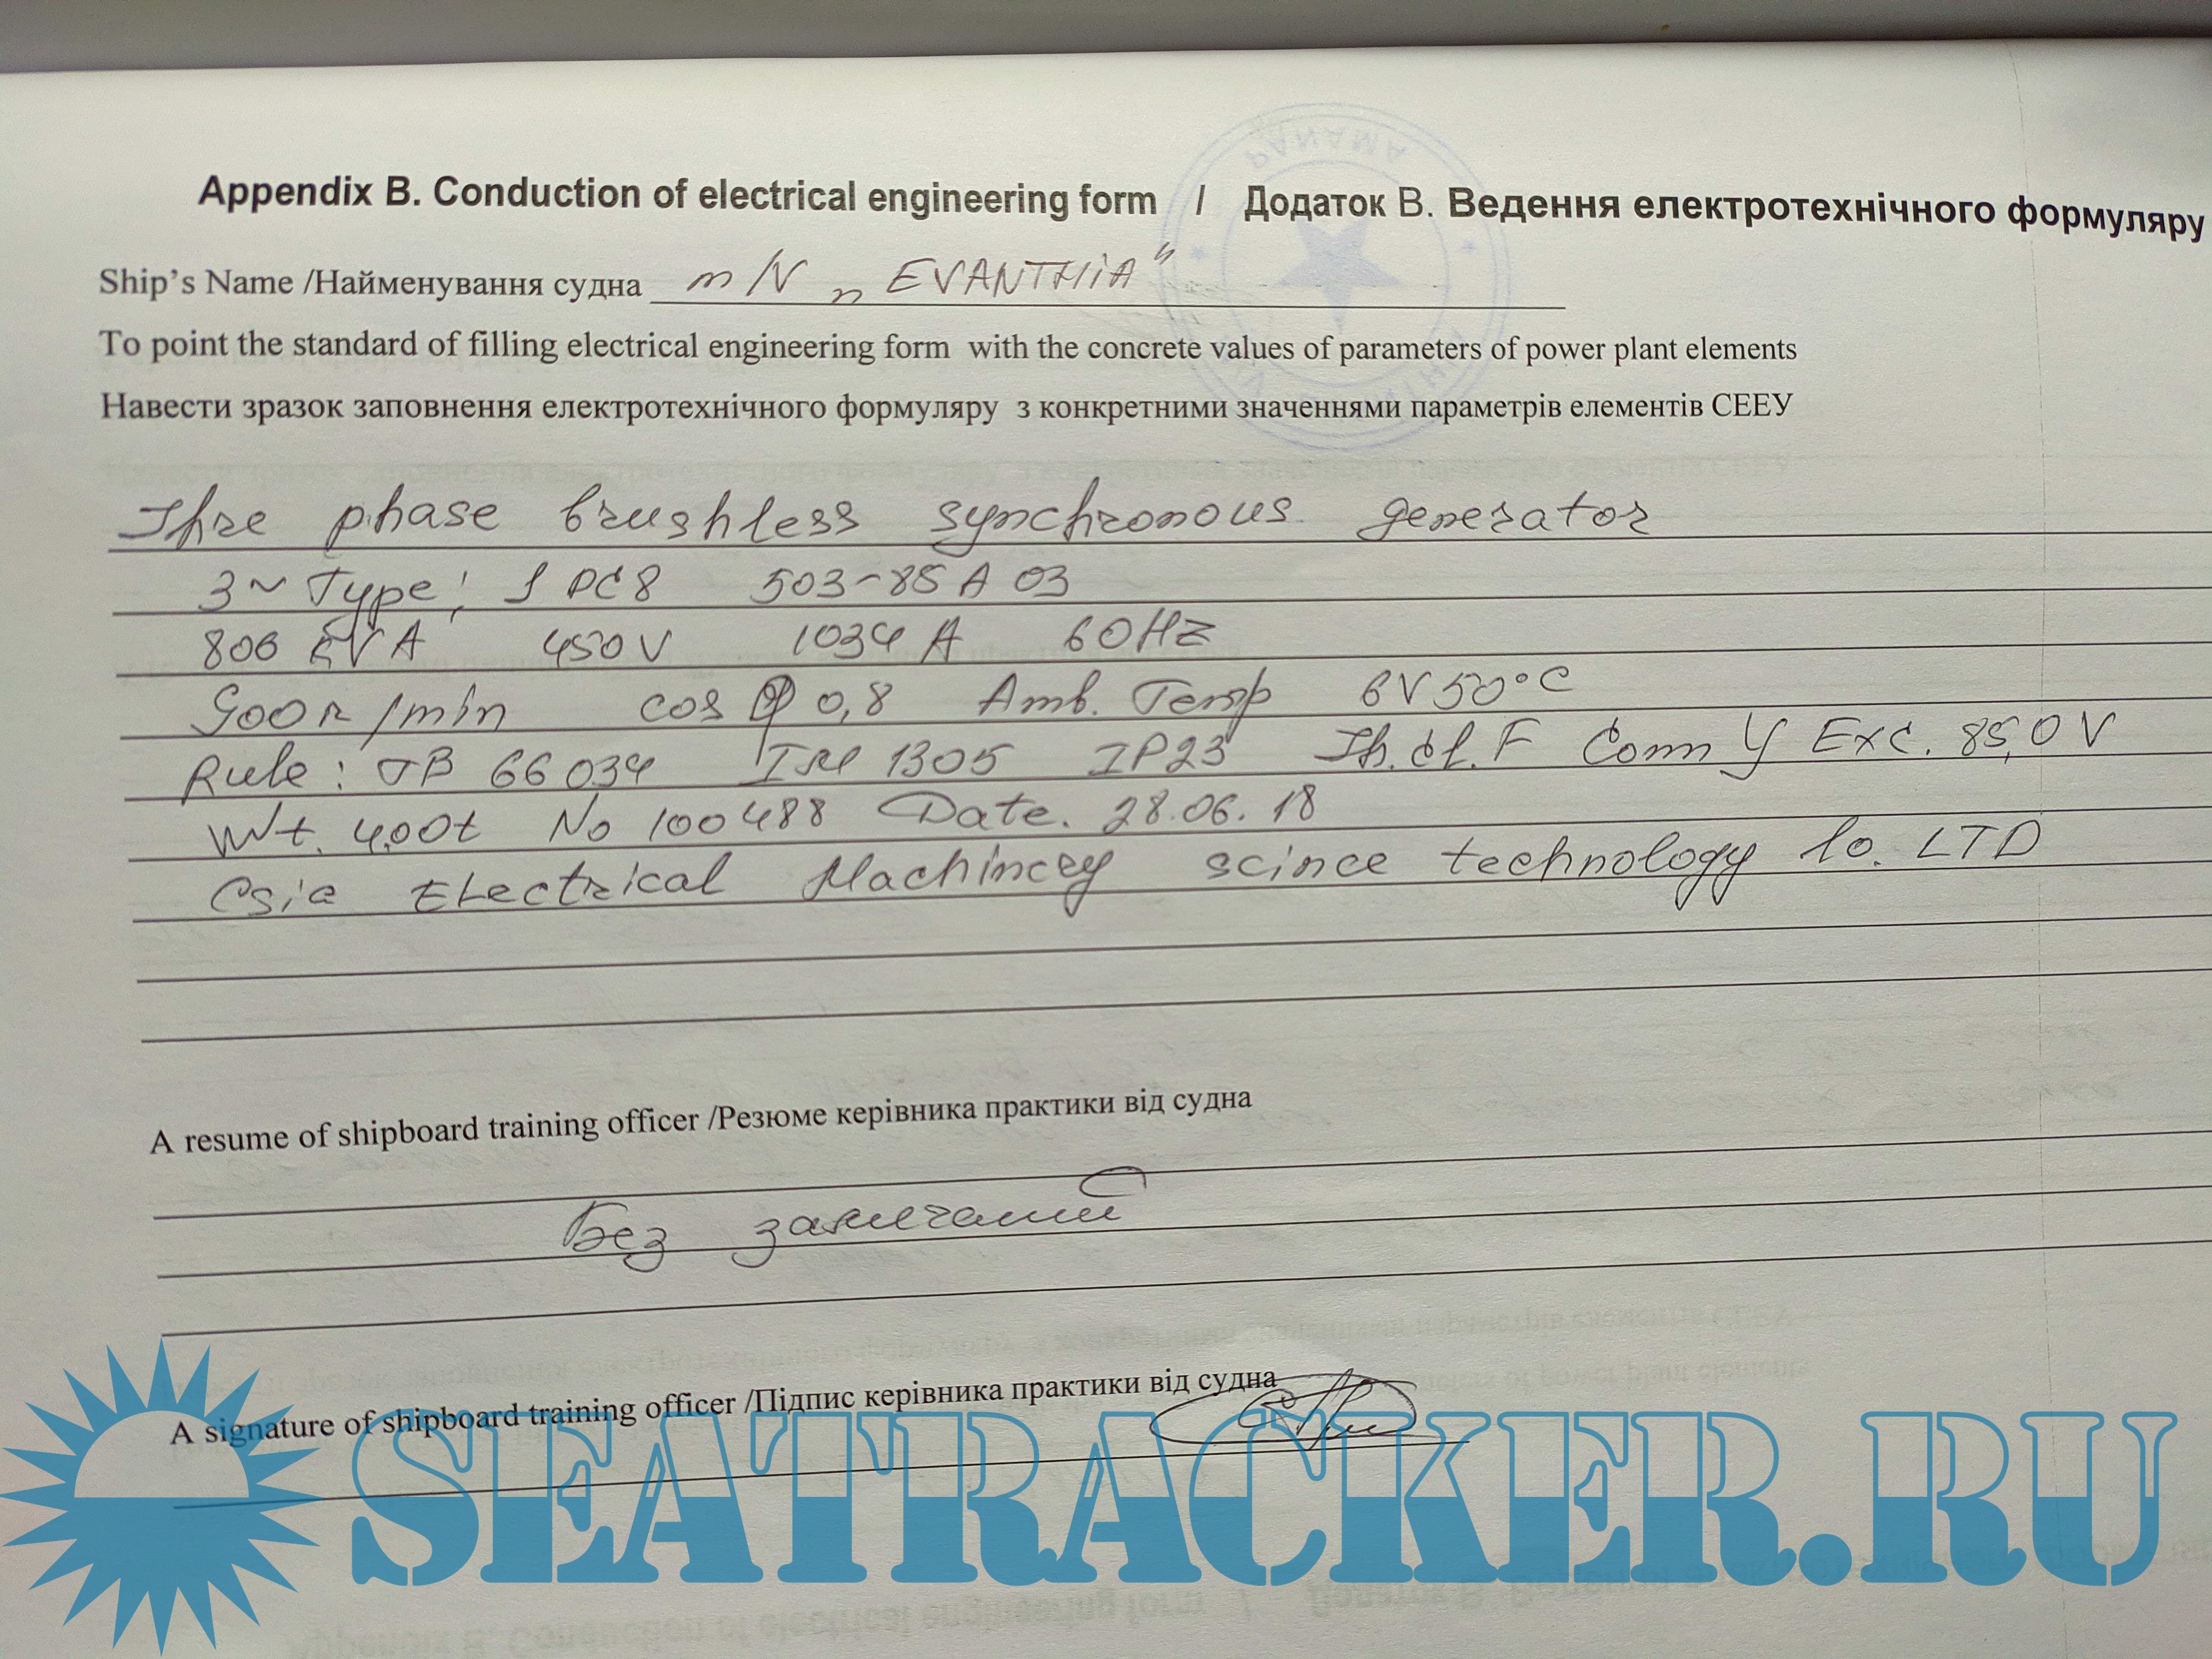 Appendix B. Conduction of electrical engineering form / Додаток В. Ведення електротехнічного формуляру
Ship's Name /Найменування судна m/V „EVANTHIA"
To point the standard of filling electrical engineering form with the concrete values of parameters of power plant elements
Навести зразок заповнення електротехнічного формуляру з конкретними значеннями параметрів елементів СЕЕУ
Thre phase brushless synchronous generator
3~ Type: 1 DC8 503-85 A 03
806 kVA 450V 1034 A 60HZ
900 R/min cos φ 0,8 Amb. Temp 50°C
Rule: 66034 IM 1305 IP23 Th.cl. F Conn Y Exc. 85,0 V
Wt. 4,00t No 100488 Date. 28.06.18
Csia Electrical Machincey scince technology Co. LTD
A resume of shipboard training officer /Резюме керівника практики від судна
Без замечаний
A signature of shipboard training officer /Підпис керівника практики від судна
SEATRACKER.RU
PANAMA